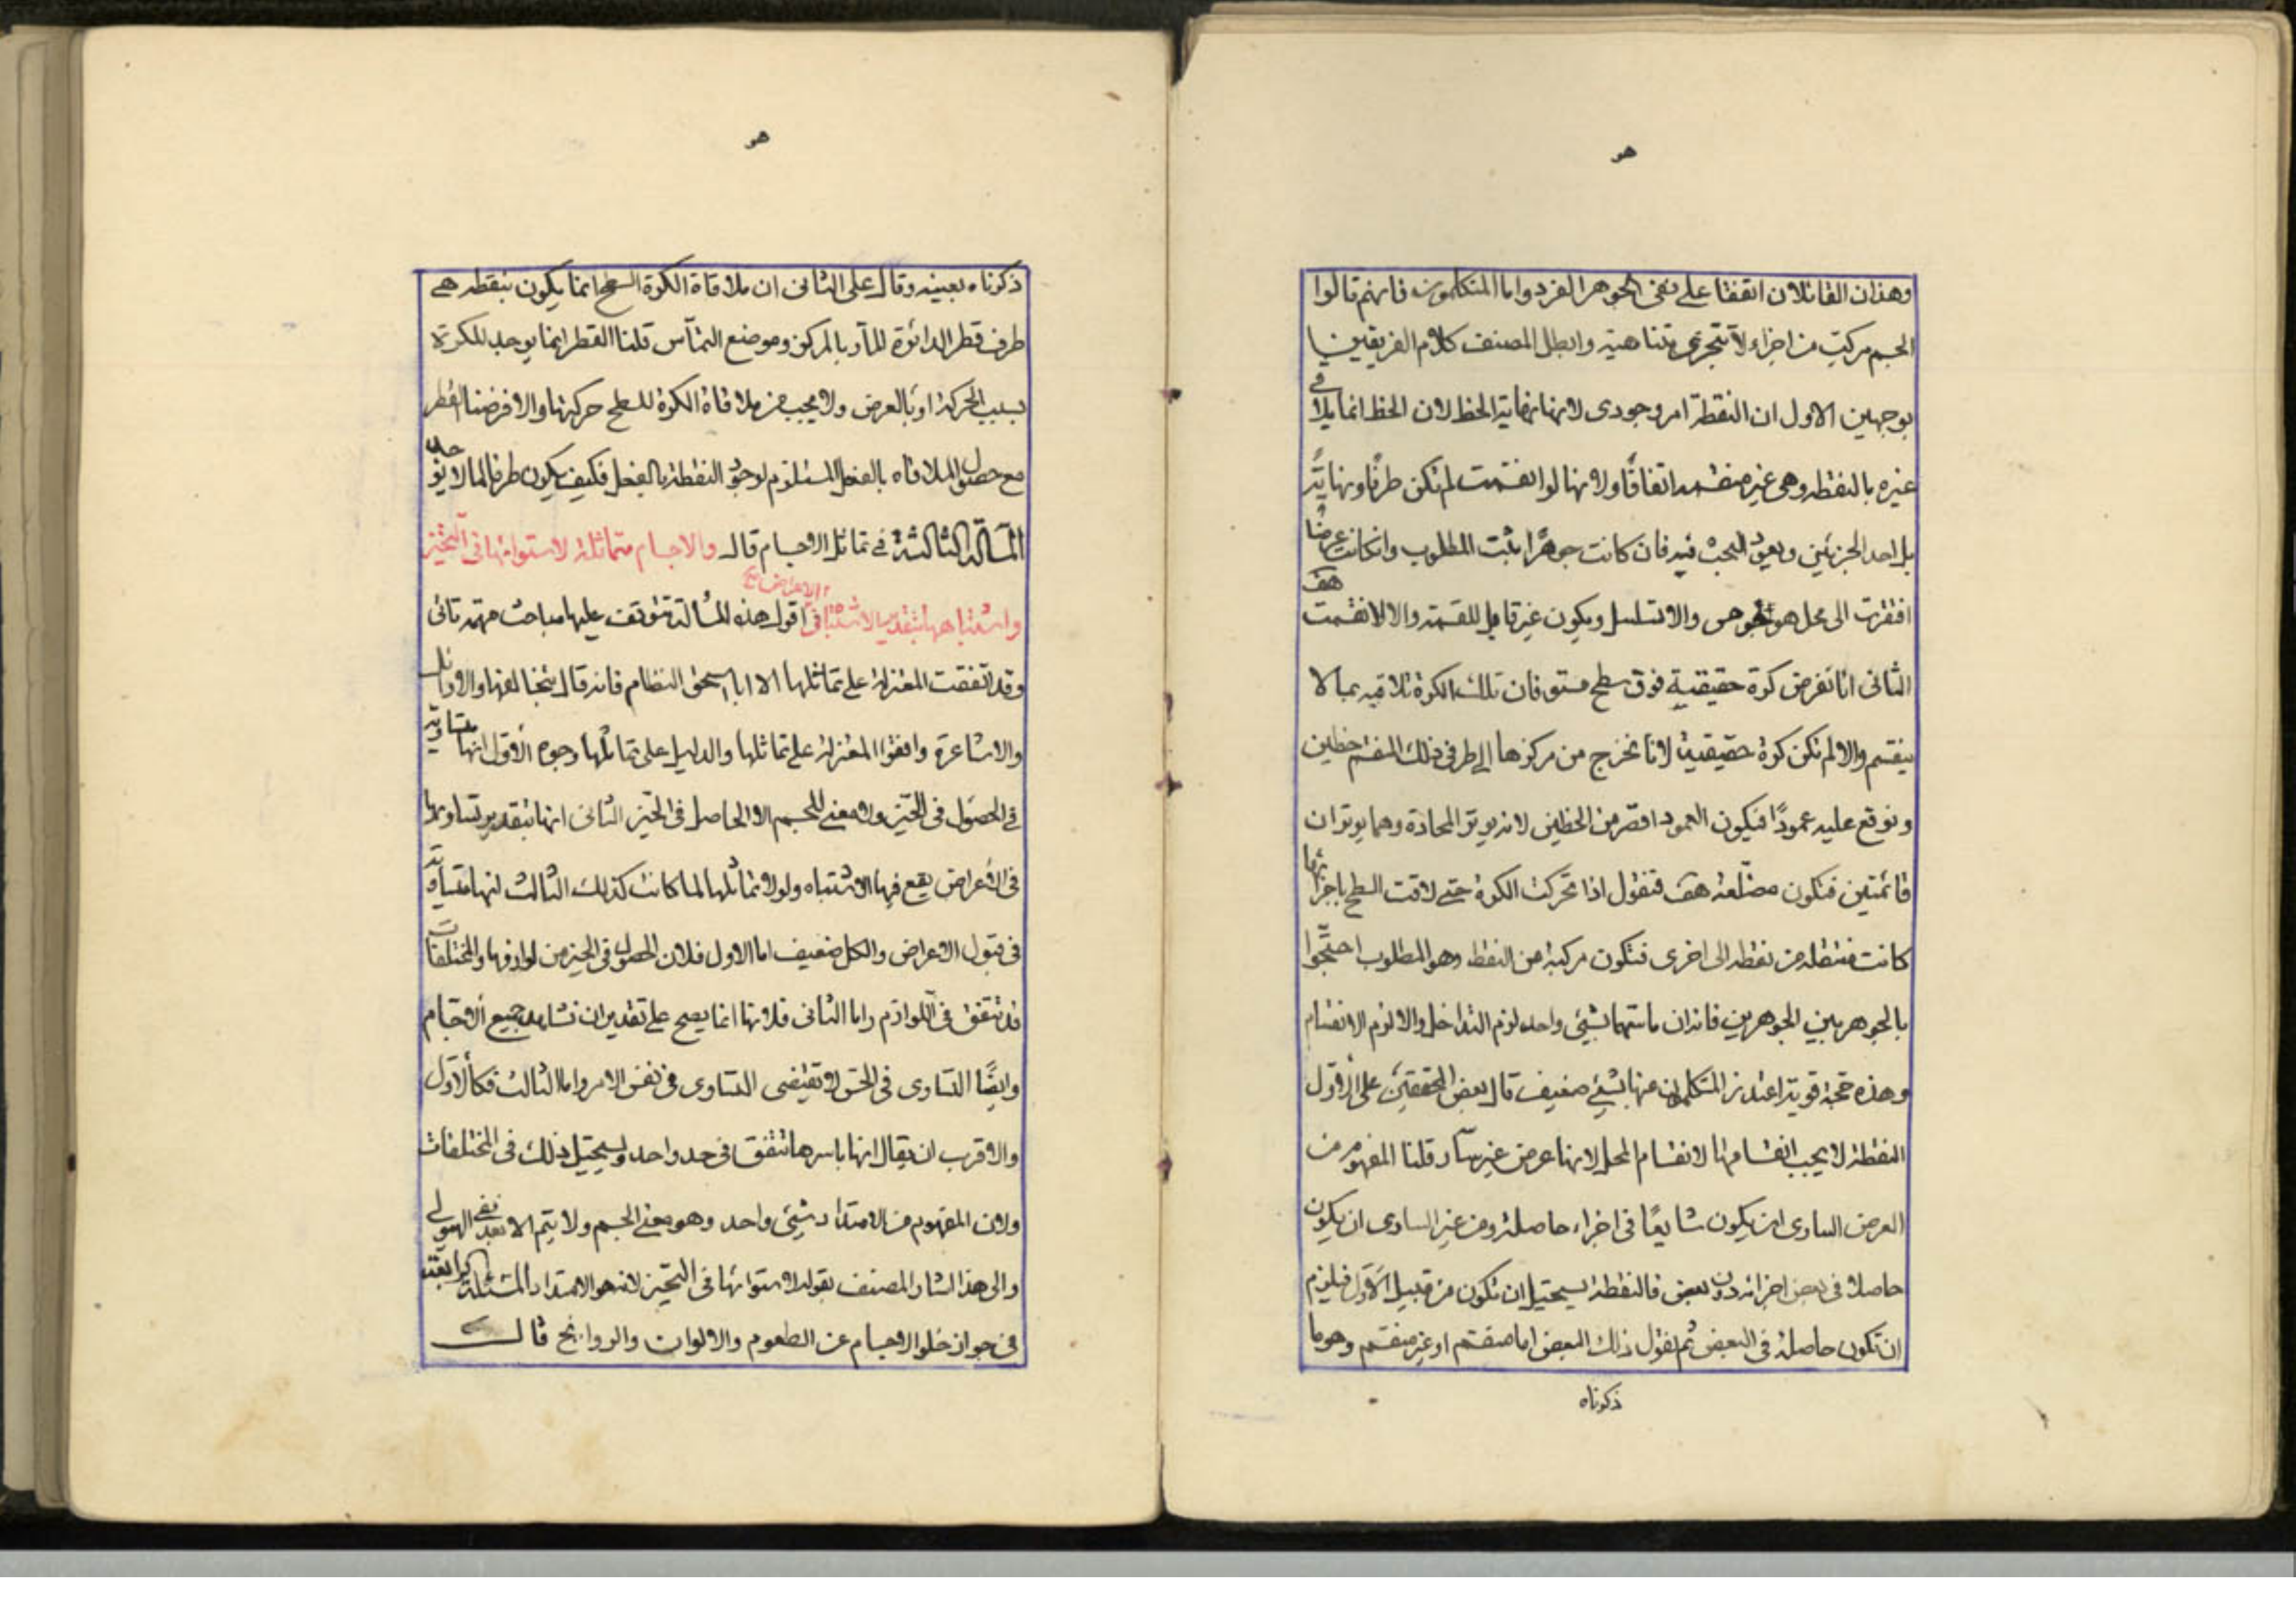 هو
وهذان القائلان اتفقا على نفى الجوهر الفرد واما المتكلمون فانهم قالوا
الجسم مركب من اجزاء لا تتجزى متناهية وابطل المصنف كلام الفريقين
بوجهين الاول ان النقطة امر وجودى لانها نهاية الخط لان الخط انما يلاقى
غيره بالنقطه وهى غير منقسمه اتفاقًا ولانها لو انقسمت لم تكن طرفًا ونهايةً
بل احد الجزئين ويعود البحث فيه فان كانت جوهرًا ثبت المطلوب وانكانت عرضًا
افتقرت الى محل هو جوهر والا تسلسل ويكون غير قابل للقسمة والا لانقسمت هف
الثانى انا نفرض كرة حقيقية فوق سطح مستو فان تلك الكرة تلاقيه بما لا
ينقسم والا لم تكن كرة حقيقية لانا نخرج من مركزها الى طرفى ذلك المنقسم خطين
ونوقع عليه عمودًا فيكون العمود اقصر من الخطين لانه يوتر الحادة وهما يوتران
قائمتين فتكون مضلعة هف فنقول اذا تحركت الكرة حتى لاقت السطح باجزائها
كانت منتقلة من نقطه الى اخرى فتكون مركبة من النقط وهو المطلوب احتجوا
بالجوهر بين الجوهرين فانه ان ماسهما بشئ واحد لزم التداخل والا لزم الانقسام
وهذه حجة قوية اعتذر المتكلمون عنها بشئ ضعيف قال بعض المحققين على الاول
النقطة لا يجب انقسامها لانقسام المحل لانها عرض غير سار قلنا المفهوم من
العرض السارى ان يكون شايعًا فى اجزاء حاصلة ومن غير السارى ان يكون
حاصلا فى بعض اجزائه دون بعض فالنقطة يستحيل ان تكون من قبيل الاول فيلزم
ان تكون حاصلة فى البعض ثم نقول ذلك البعض اما منقسم او غير منقسم وهو ما
ذكرناه
هو
ذكرناه بعينه وقال على الثانى ان ملاقاة الكرة السطح انما يكون بنقطه هى
طرف قطر الدائرة المار بالمركز وموضع التماس قلنا القطر انما يوجد للكرة
بسبب الحركة او بالعرض ولا يجب من ملاقاة الكرة للسطح حركتها والا فرضنا القطر
مع حصول الملاقاه بالفعل المستلزم لوجود النقطة بالفعل فكيف يكون طرفا لما لا يوجد
المسألة الثالثة فى تماثل الاجسام قال والاجسام متماثلة لاستوائها فى التحيز
واشتباهها بتقدير الاشتباه فى الاعراض اقول هذه المسألة تتوقف عليها مباحث مهمه تاتى
وقد اتفقت المعتزلة على تماثلها الا ابا اسحق النظام فانه قال بتخالفها والاوائل
والاشاعرة وافقوا المعتزلة على تماثلها والدليل على تماثلها وجوه الاول انها متساوية
فى الحصول فى الحيز ولا معنى للجسم الا الحاصل فى الحيز الثانى انها بتقدير تساويها
فى الاعراض يقع فيها الاشتباه ولولا تماثلها لما كانت كذلك الثالث انها متساوية
فى قبول الاعراض والكل ضعيف اما الاول فلان الحصول فى الحيز من لوازمها والمختلفات
قد تتفق فى اللوازم واما الثانى فلانها انما يصح على تقدير ان نشاهد جميع الاجسام
وايضًا التساوى فى الحس لا تقتضى التساوى فى نفس الامر واما الثالث فكالاول
والاقرب ان يقال انها باسرها تتفق فى حد واحد ويستحيل ذلك فى المختلفات
ولان المفهوم من الامتداد شئ واحد وهو معنى الجسم ولا يتم الا بعد نفى الهيولى
والى هذا اشار المصنف بقوله لاستوائها فى التحيز لانه هو الامتداد المسئلة الرابعة
فى جواز خلو الاجسام عن الطعوم والالوان والروائح قال